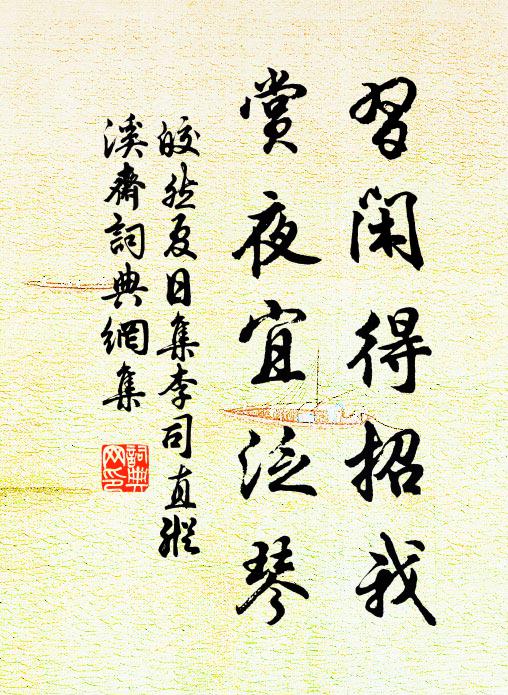 習閑得招我
賞夜宜泛琴
皎然夏日集李司直縱
溪齋詞典網集
詞典
网印